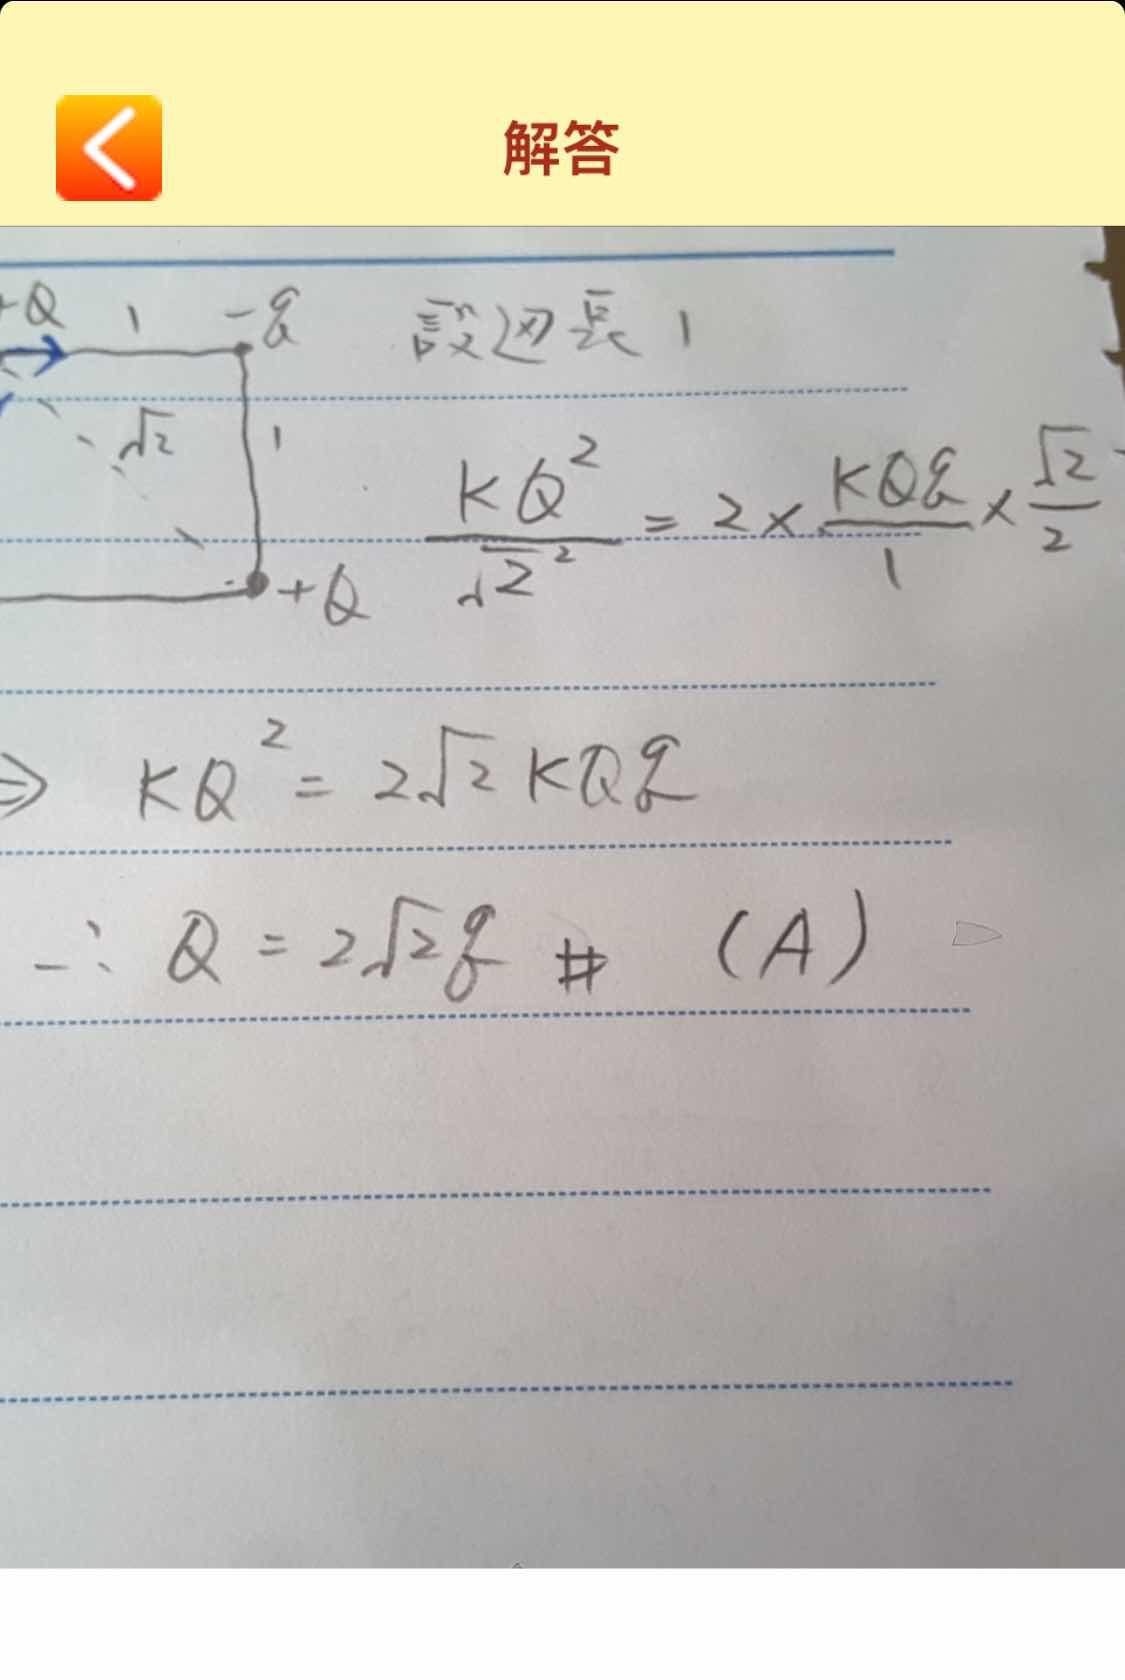 解答
+Q 1 -q 設边長 1
√2 1
KQ² / √2² = 2 × KQq / 1 × √2 / 2
+Q
⇒ KQ² = 2√2 KQq
∴ Q = 2√2 q # (A)